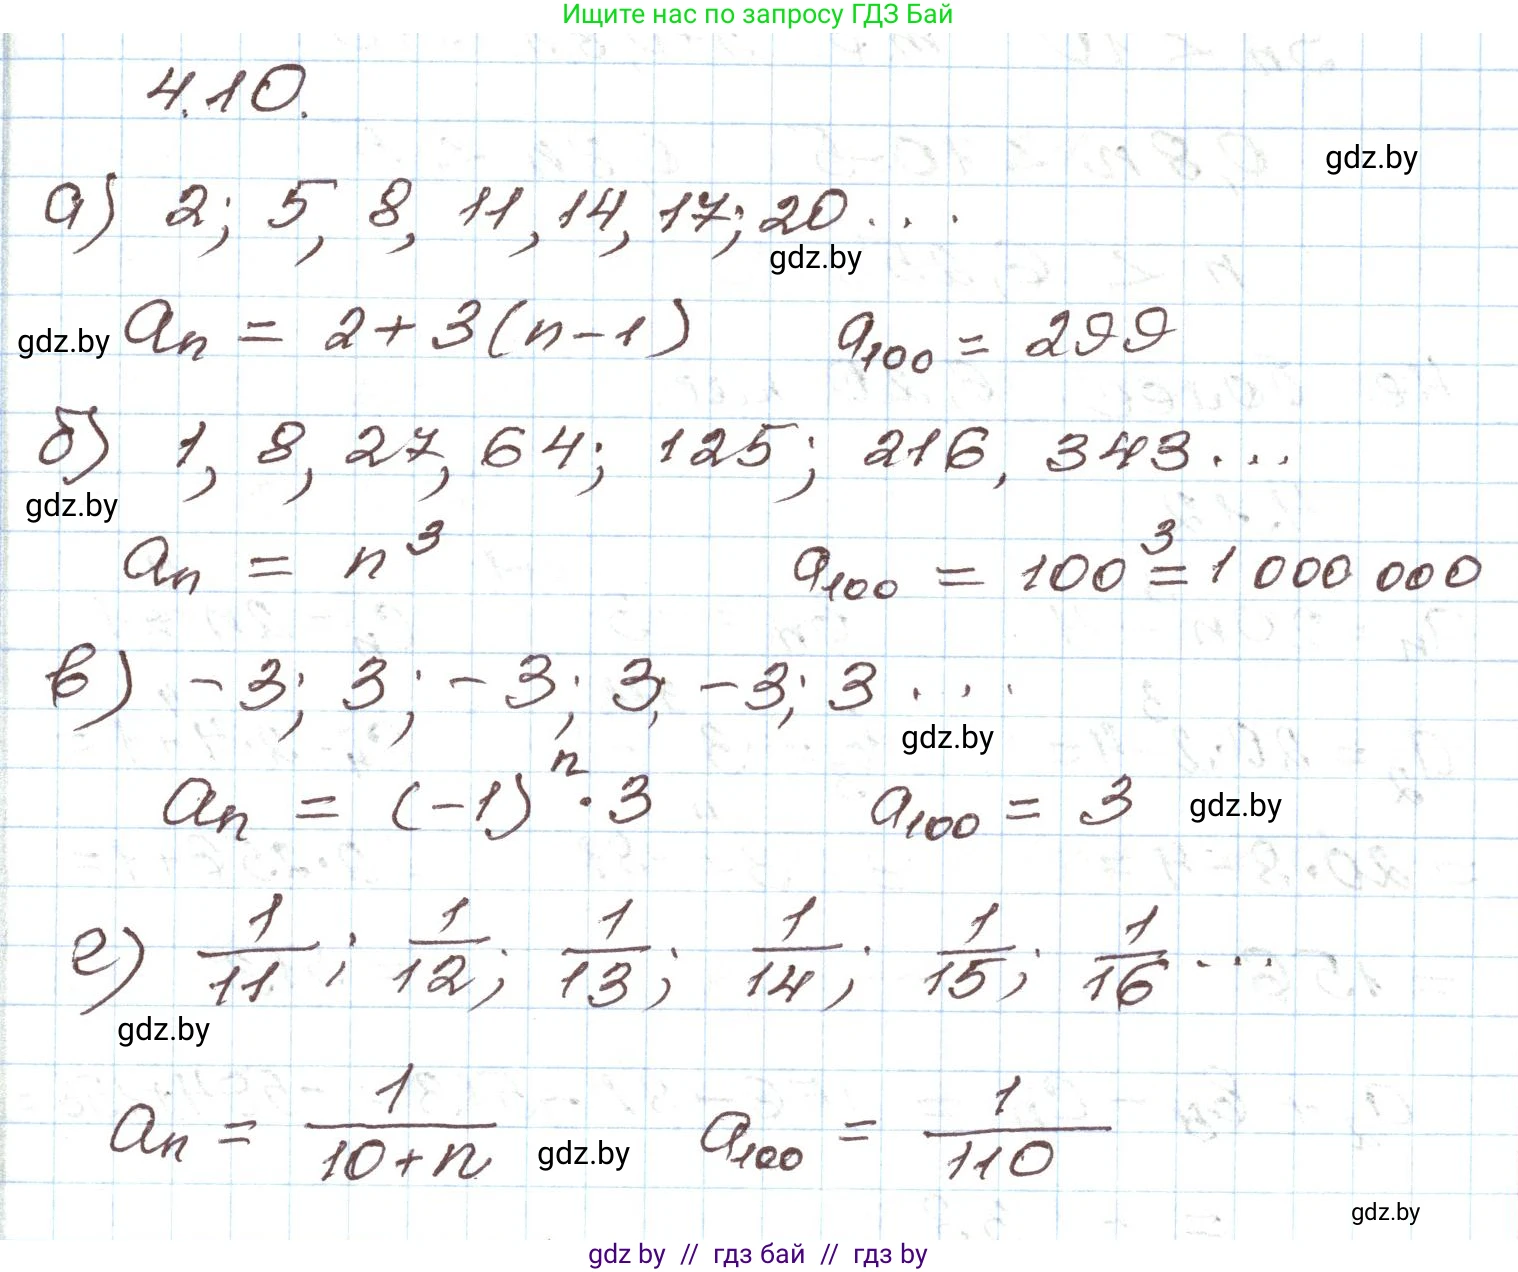 Ищите нас по запросу ГДЗ Бай
4.10.
gdz.by
а) 2; 5, 8, 11, 14, 17; 20 ...
gdz.by
gdz.by aₙ = 2 + 3(n - 1) a₁₀₀ = 299
б) 1, 8, 27, 64; 125; 216, 343...
gdz.by
aₙ = n³ a₁₀₀ = 100³ = 1 000 000
в) -3; 3; -3; 3; -3; 3 ...
gdz.by
aₙ = (-1)ⁿ · 3 a₁₀₀ = 3 gdz.by
г) 1/11; 1/12; 1/13; 1/14; 1/15; 1/16 ...
gdz.by
aₙ = 1/(10+n) gdz.by a₁₀₀ = 1/110
gdz.by
gdz by // гдз бай // гдз by